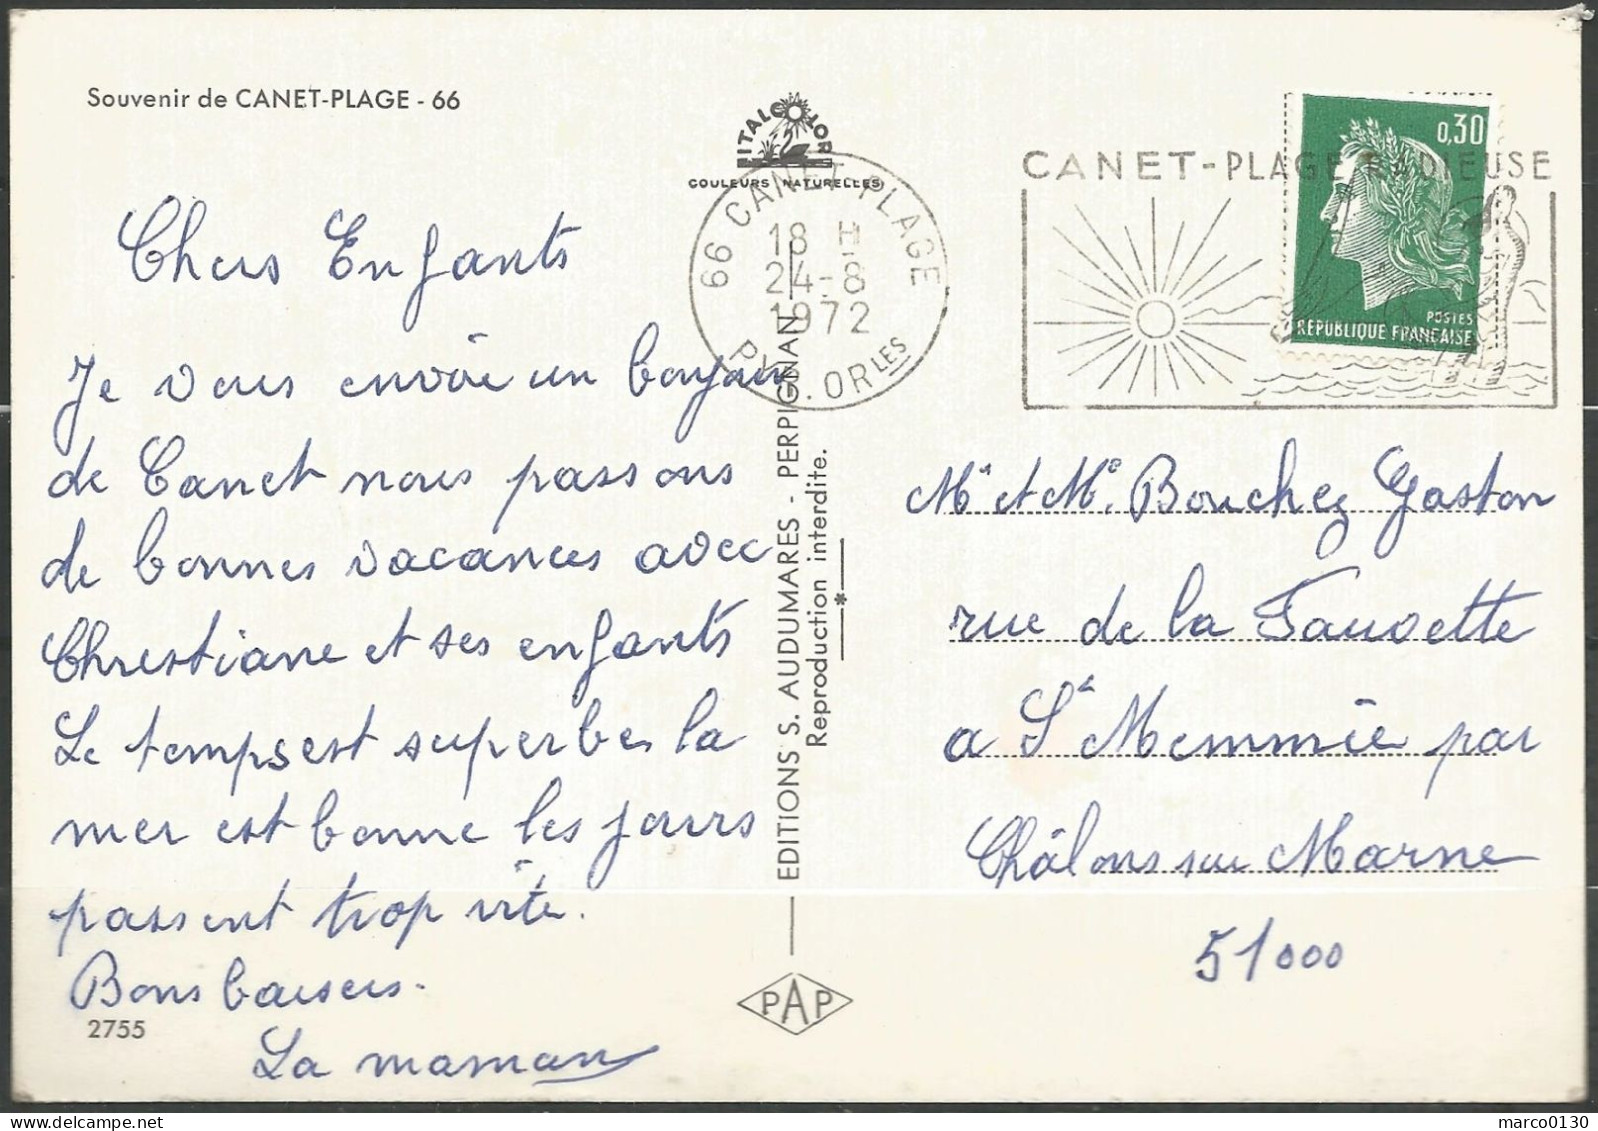 Souvenir de CANET-PLAGE - 66
ITALCOLOR
COULEURS NATURELLES
66 CANET-PLAGE
18 H
24-8
1972
PYR. ORLES
CANET-PLAGE RADIEUSE
0,30
POSTES
REPUBLIQUE FRANÇAISE
Chers Enfants
Je vous envoie un bonjour
de Canet nous passons
de bonnes vacances avec
Christiane et ses enfants
Le temps est superbe la
mer est bonne les jours
passent trop vite.
Bons baisers.
La maman
2755
EDITIONS S. AUDUMARES - PERPIGNAN
Reproduction interdite.
PAP
Mr et Me. Bouchez Gaston
rue de la Fauvette
a St Memmie par
Châlons sur Marne
51000
marco0130